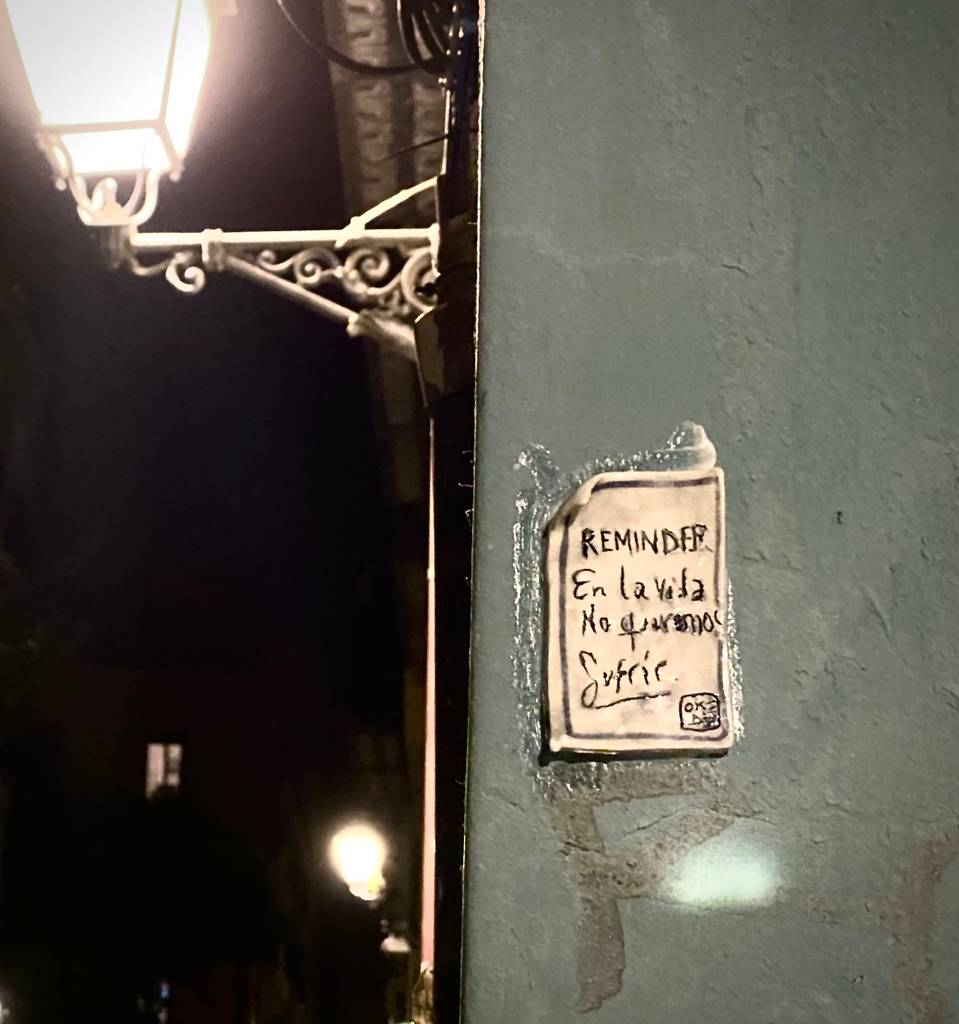 REMINDER
En la vida
No queremos
Sufrir.